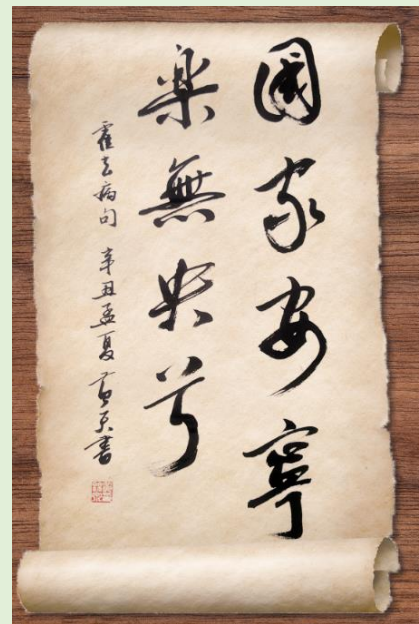 國家安寧
樂無央兮
霍去病句 辛丑孟夏 書